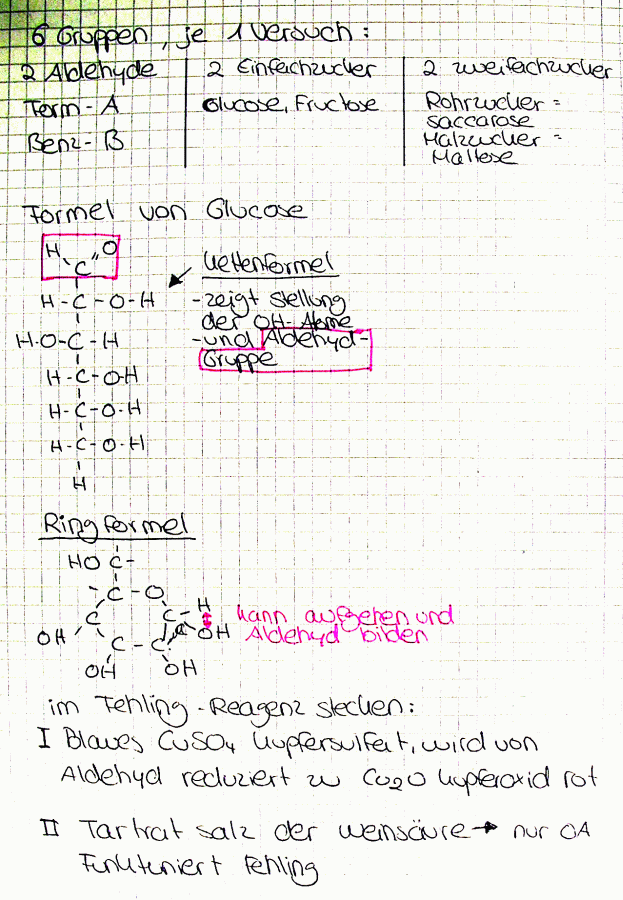 6 Gruppen, je 1 Versuch:
2 Aldehyde
Form-A
Benz-B
2 Einfachzucker
Glucose, Fructose
2 zweifachzucker
Rohrzucker =
saccarose
Malzucker =
Maltese
Formel von Glucose
H O
C
H-C-O-H
H-O-C-H
H-C-OH
H-C-O-H
H-C-O-H
H
Kettenformel
-zeigt Stellung
der OH-Atome
-und Aldehyd-
Gruppe
Ringformel
HO C-
-C-O
C C-H
OH C-C OH
OH OH
kann aufgehen und
Aldehyd bilden
im Fehling-Reagenz stecken:
I Blaues CuSO4 Kupfersulfat, wird von
Aldehyd reduziert zu Cu2O Kupferoxid rot
II Tartrat salz der weinsäure → nur
Funktuniert Fehling